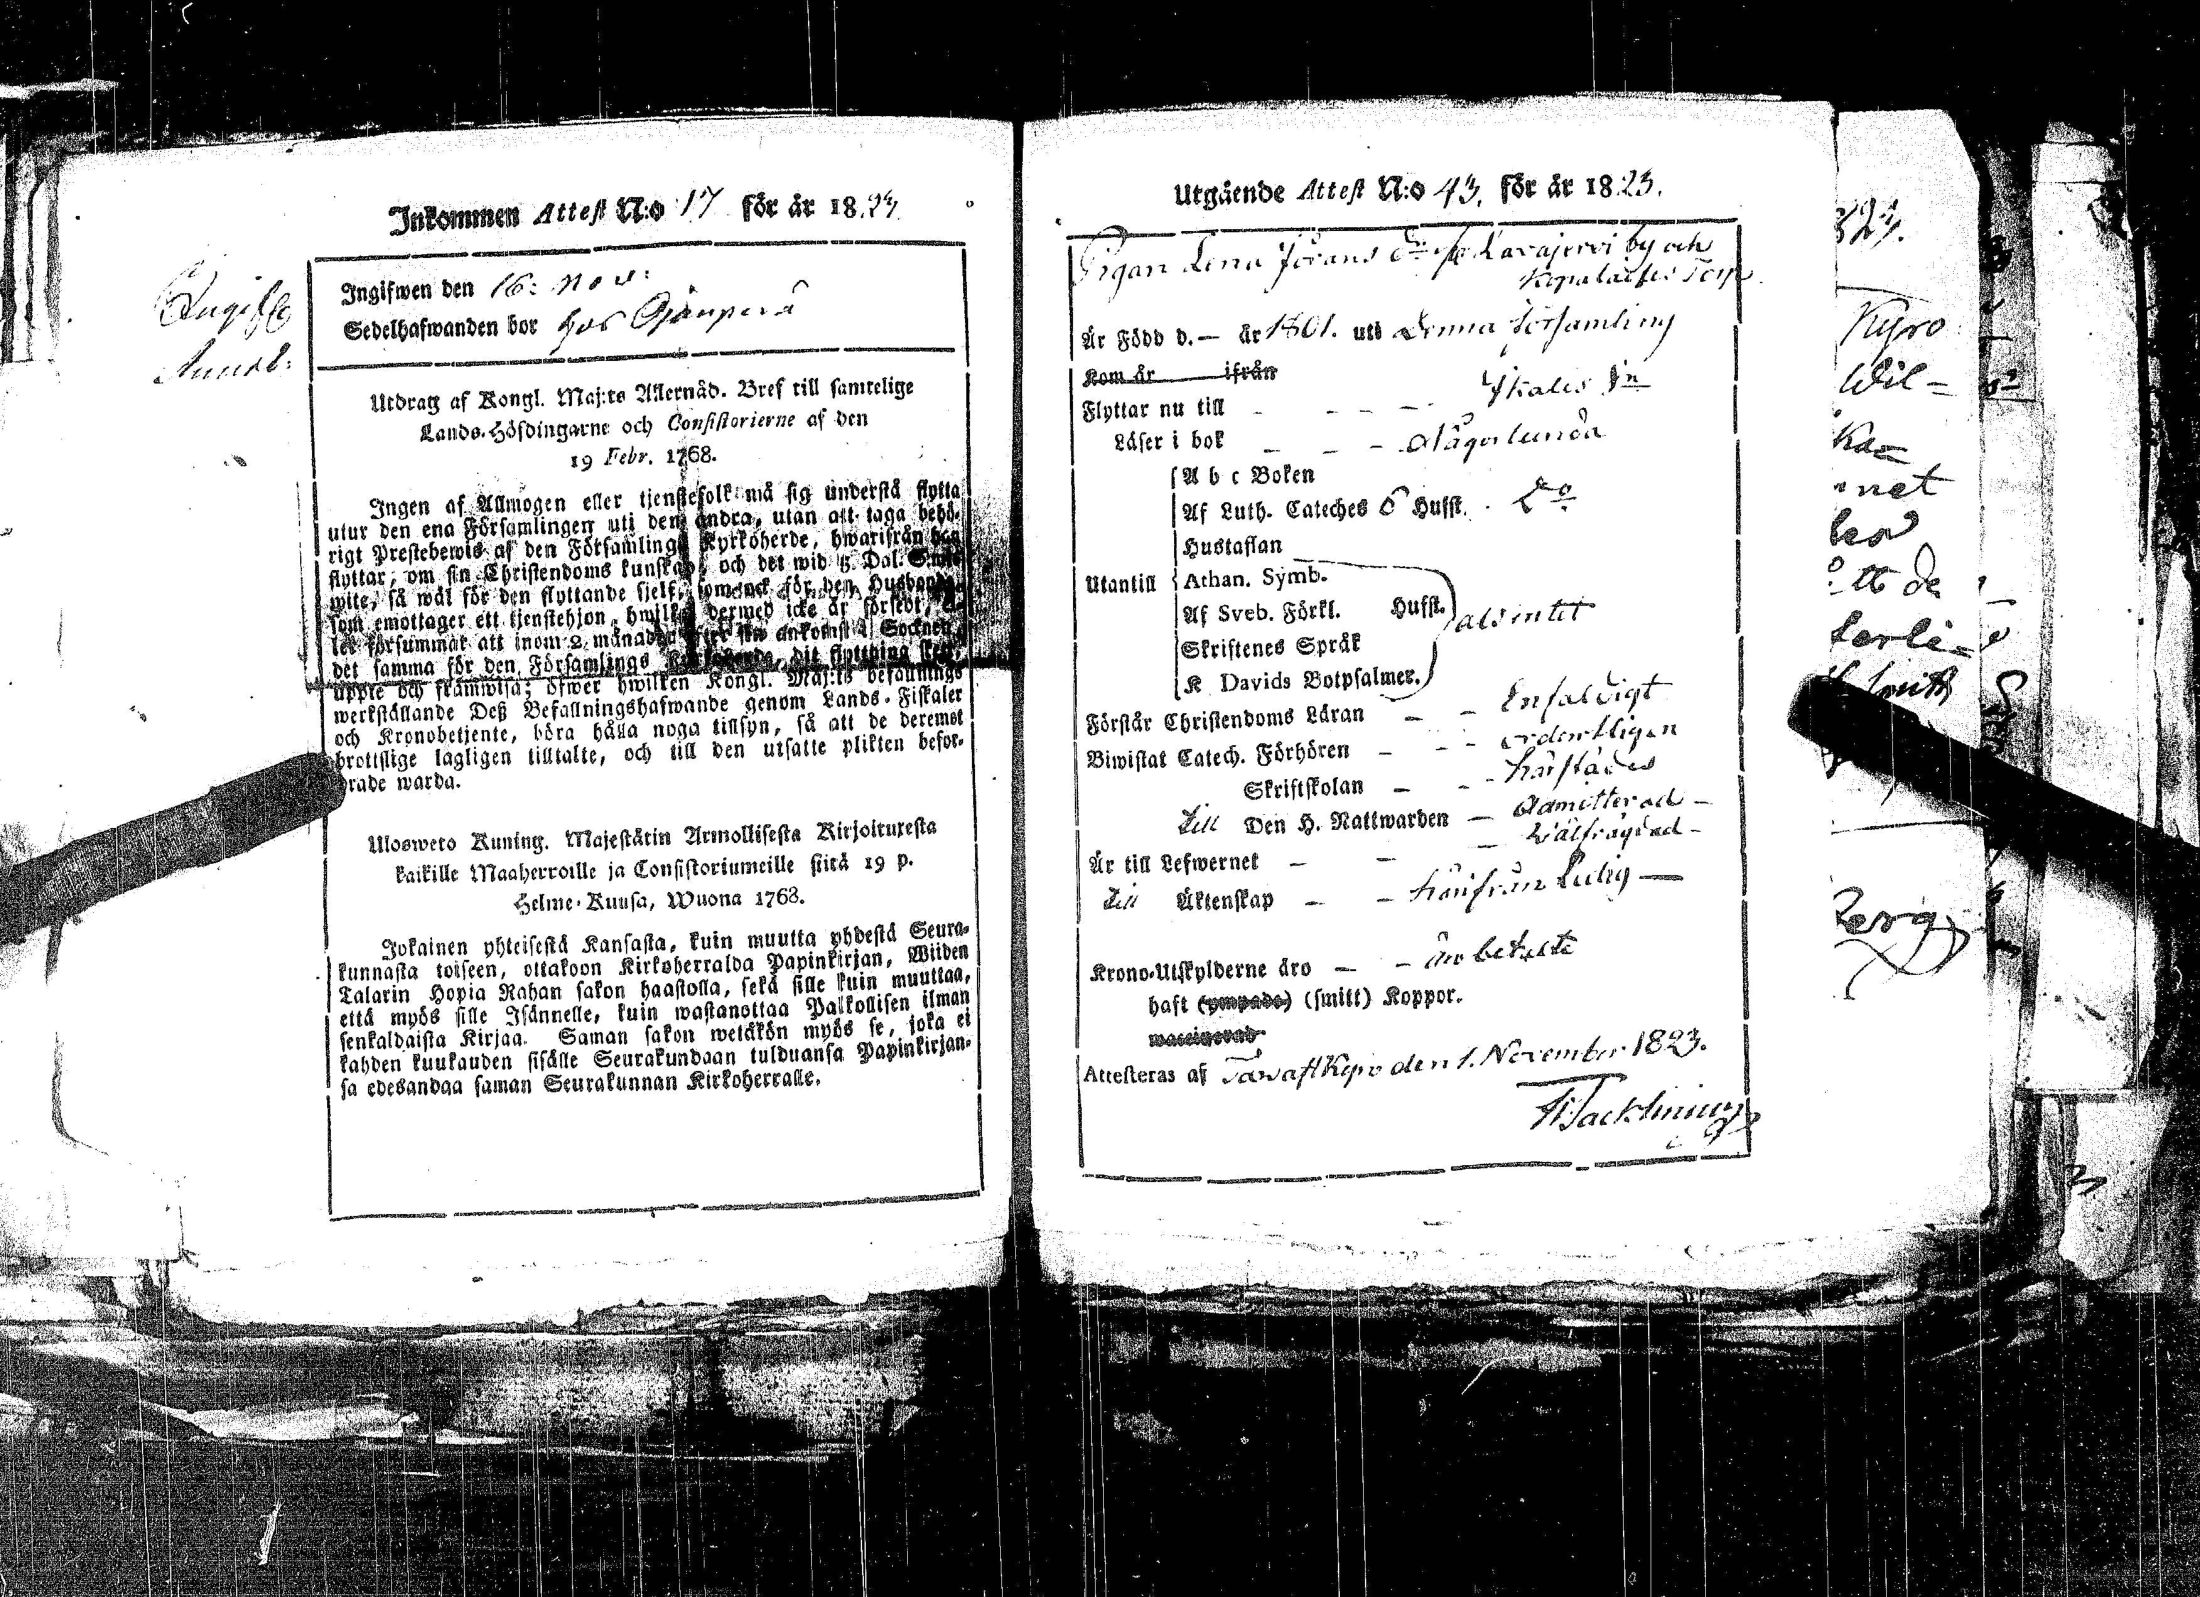 Inkommen Attest N:o 17 för år 1823
Ingifwen den 16: Nov:
Sedelhafwanden bor hos
Utdrag af Kongl. Maj:ts Allernåd. Bref till samtelige
Lands-Höfdingarne och Consistorierne af den
19 Febr. 1768.
Ingen af Allmogen eller tjenstefolk må sig understå flytta
utur den ena Församlingen uti den andra, utan att taga behö-
rigt Prestebewis af den Församlings Kyrkoherde, hwarifrån han
flyttar, om sin Christendoms kunskap, och det wid 5. Dal. S:mts
wite, så wäl för den flyttande sjelf, som ock för den Husbonde,
som emottager ett tjenstehjon, hwilket dermed icke är försedt, el-
ler försummar att inom 2 månader efter sin ankomst i Socknen
det samma för den Församlings Kyrkoherde, dit flyttning sker,
uppte och framwisa; öfwer hwilken Kongl. Maj:ts befallnings
werkställande Deß Befallningshafwande genom Lands-Fiskaler
och Kronobetjente, böra hålla noga tillsyn, så att de deremot
brottslige lagligen tilltalte, och till den utsatte plikten befor-
drade warda.
Ulosweto Kuning. Majestätin Armollisesta Kirjoituxesta
kaikille Maaherroille ja Consistoriumeille siitä 19 p.
Helme-Kuusa, Wuona 1768.
Jokainen yhteisestä Kansasta, kuin muutta yhdestä Seura-
kunnasta toiseen, ottakoon Kirkoherralda Papinkirjan, Wiiden
Talarin Hopia Rahan sakon haastolla, sekä sille kuin muuttaa,
että myös sille Isännelle, kuin wastanottaa Palkollisen ilman
senkaldaista Kirjaa. Saman sakon wetäkön myös se, joka ei
kahden kuukauden sisälle Seurakundaan tulduansa Papinkirjan-
sa edesandaa saman Seurakunnan Kirkoherralle.
Utgående Attest N:o 43. för år 1823.
Pigan Lena Jörans Dr fr Karajervi by och
Torp
Är Född d. — år 1801. uti Denna Församling
Kom år ifrån
Flyttar nu till - - - - Ikalis Sn
Läser i bok - - - någorlunda
A b c Boken
Af Luth. Cateches 6 Hufst. Do
Hustaflan
Utantill Athan. Symb.
Af Sveb. Förkl. Hufst. alsintet
Skriftenes Språk
K Davids Botpsalmer.
Förstår Christendoms Läran - - Enfaldigt
Biwistat Catech. Förhören - - - ordentligen
Skriftskolan - - härstädes
till Den H. Nattwarden - Admitterad -
Är till Lefwernet - - - wälfrägdad -
till Äktenskap - - härifrån Ledig —
Krono-Utskylderne äro - - äro betalte
haft (ympade) (smitt) Koppor.
waccinerad
Attesteras af Tavast Kyro den 1. November 1823.
Kyro
Wil=
Ka=
net